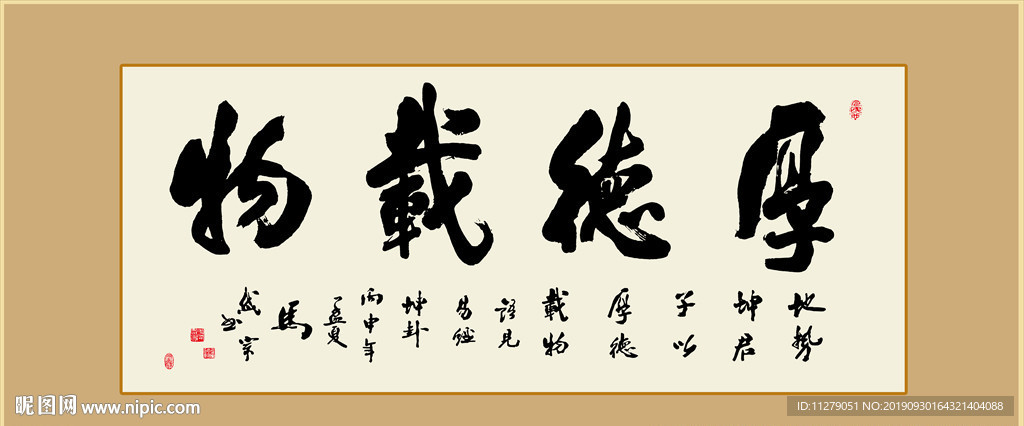 厚德載物
地势
坤君
子以
厚德
載物
語見
易經
坤卦
丙申年
孟夏
馬
書
昵图网 www.nipic.com
ID:11279051 NO:20190930164321404088